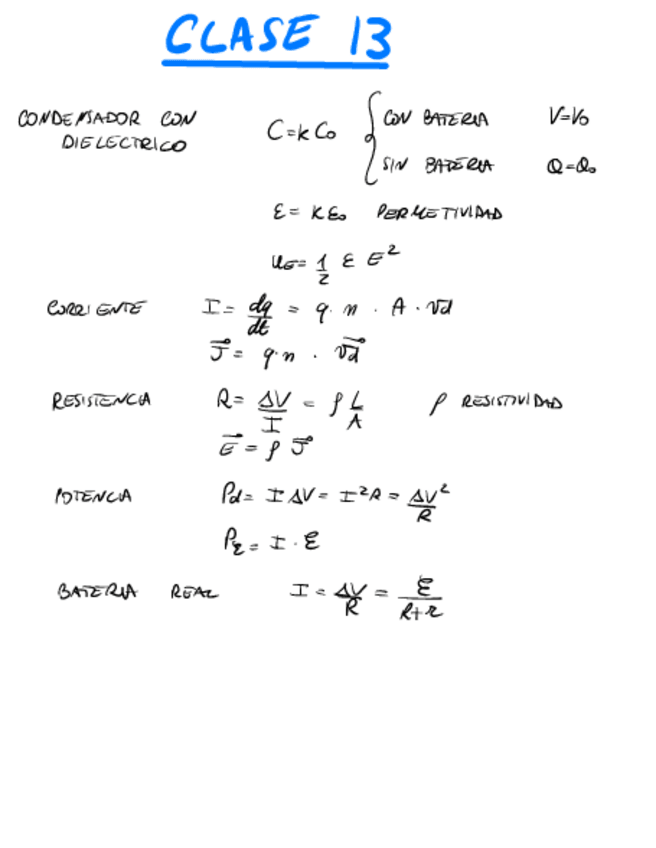 CLASE 13
CONDENSADOR CON DIELECTRICO C=kC₀ { CON BATERIA V=V₀
SIN BATERIA Q=Q₀
ε = kε₀ PERMETIVIDAD
u_E = 1/2 ε E²
CORRIENTE I = dq/dt = q · n · A · vd
J⃗ = q·n · v⃗d
RESISTENCIA R = ΔV/I = ρ L/A ρ RESISTIVIDAD
E⃗ = ρ J⃗
POTENCIA Pd = I ΔV = I²R = ΔV²/R
P_ε = I · ε
BATERIA REAL I = ΔV/R = ε/(R+r)